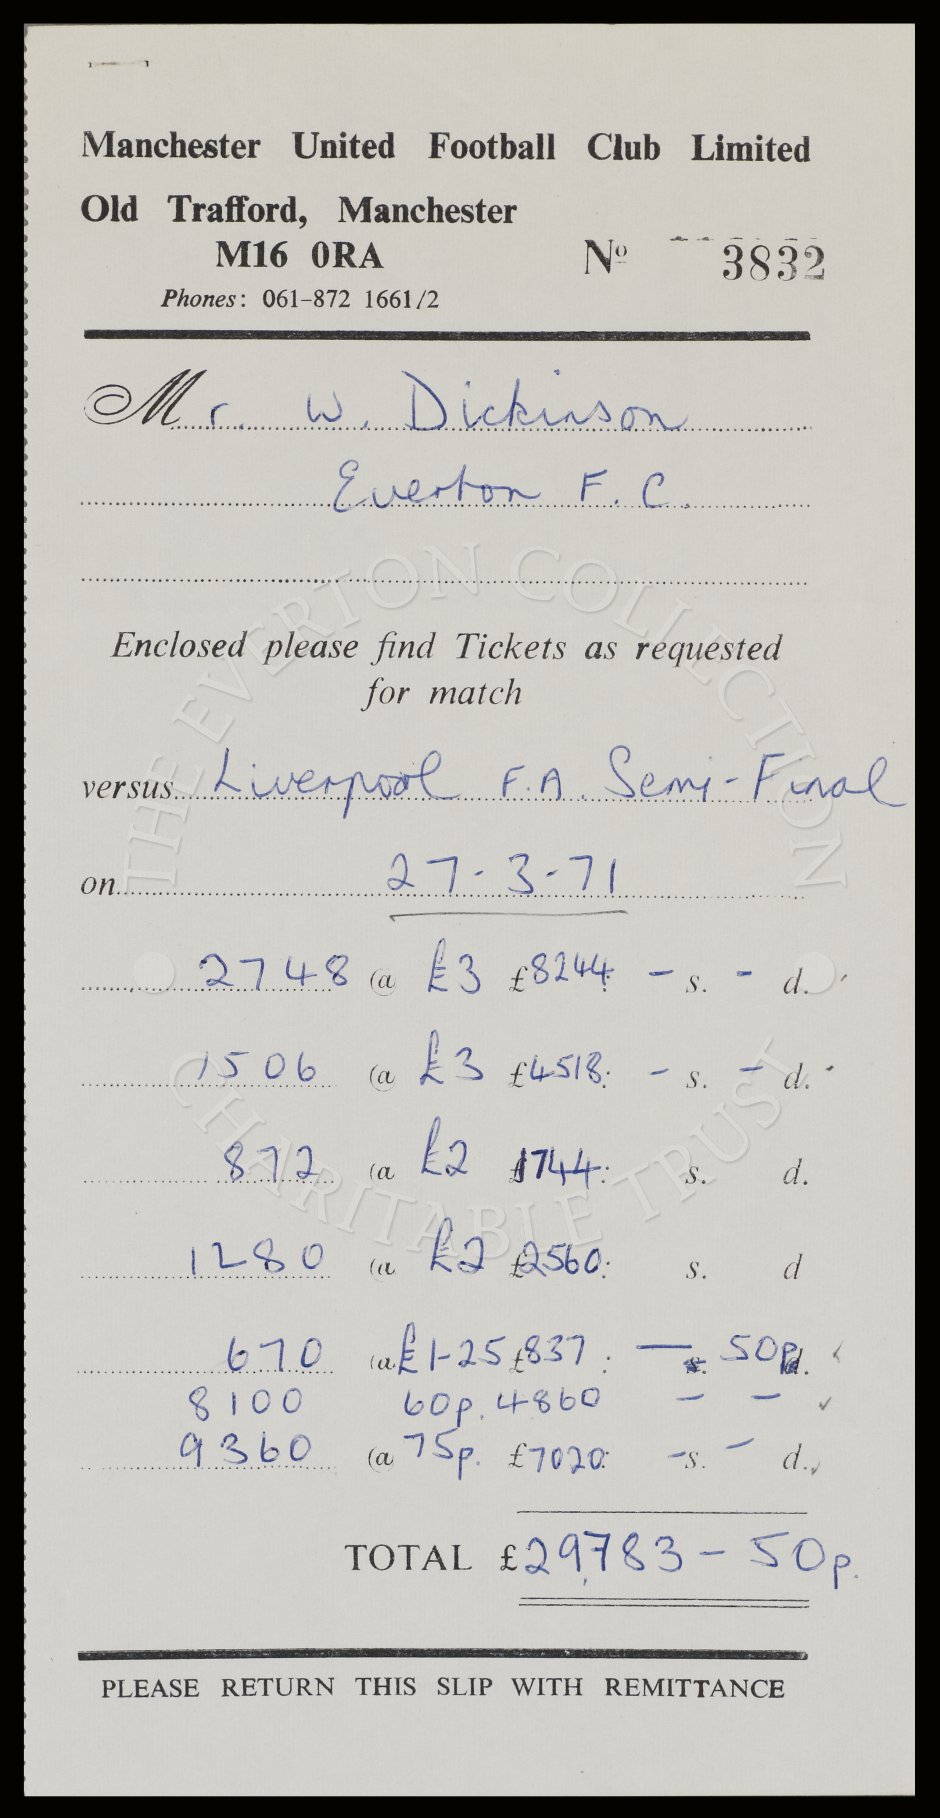 Manchester United Football Club Limited
Old Trafford, Manchester
M16 0RA
Nº 3832
Phones: 061-872 1661/2
Mr. W. Dickinson
Everton F.C.
THE EVERTON COLLECTION
Enclosed please find Tickets as requested
for match
versus Liverpool F.A. Semi-Final
on 27-3-71
2748 @ £3 £8244: - s. - d.
1506 @ £3 £4518: - s. - d.
CHARITABLE TRUST
872 @ £2 £1744: s. d.
1280 @ £2 £2560: s. d
670 @ £1-25 £837: — s. 50p d.
8100 60p. 4860 - -
9360 @ 75p. £7020: - s. - d.
TOTAL £29,783 - 50p.
PLEASE RETURN THIS SLIP WITH REMITTANCE